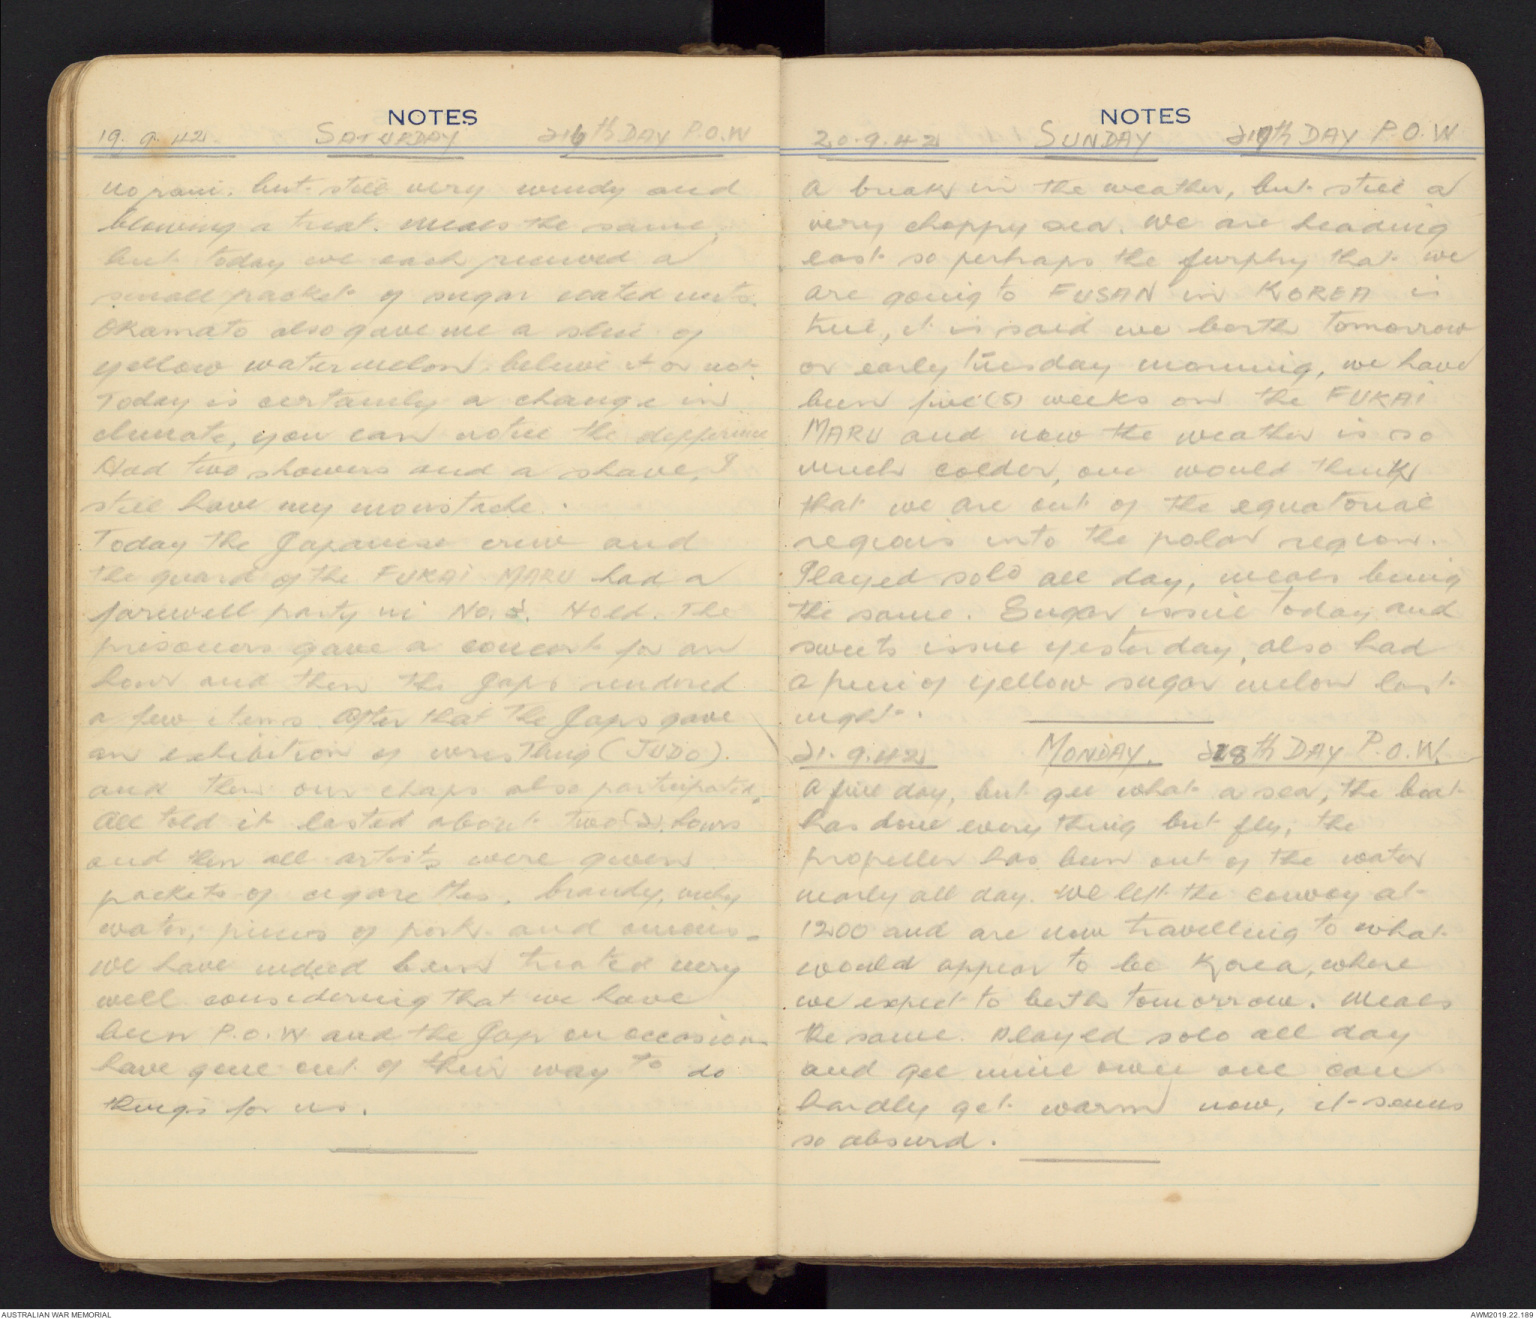 NOTES
19.9.42 SATURDAY 216th DAY P.O.W
No rain. but still very windy and
blowing a treat. Meals the same,
but today we each received a
small packet of sugar coated nuts.
Okamato also gave me a slice of
yellow watermelon. believe it or not.
Today is certainly a change in
climate, you can notice the difference
Had two showers and a shave, I
still have my moustache.
Today the Japanese crew and
the guard of the FUKAI MARU had a
farewell party in No. 2. Hold. The
prisoners gave a concert for an
hour and then the Japs rendered
a few items. After that the Japs gave
an exhibition of wrestling (JUDO).
and then our chaps also participated.
All told it lasted about two (2). hours
and then all artists were given
packets of cigarettes, brandy,
water, pieces of pork and onions.
We have indeed been treated very
well considering that we have
been P.O.W and the Jap on occasion
have gone out of their way to do
things for us.
NOTES
20.9.42 SUNDAY 217th DAY P.O.W
A break in the weather, but still a
very choppy sea. We are heading
east so perhaps the furphy that we
are going to FUSAN in KOREA is
true, it is said we berth tomorrow
or early Tuesday morning, we have
been five (5) weeks on the FUKAI
MARU and now the weather is so
much colder, one would think
that we are out of the equatorial
regions into the polar region.
Played solo all day, meals being
the same. Sugar issue today and
sweets issue yesterday, also had
a piece of yellow sugar melon last
night.
21.9.42 MONDAY. 218th DAY P.O.W.
A fine day, but gee what a sea, the boat
has done every thing but fly, the
propeller has been out of the water
nearly all day. We left the convoy at
1200 and are now travelling to what
would appear to be Korea, where
we expect to berth tomorrow. Meals
the same. Played solo all day
and gee mine own one can
hardly get warm now, it seems
so absurd.
AUSTRALIAN WAR MEMORIAL
AWM2019.22.189